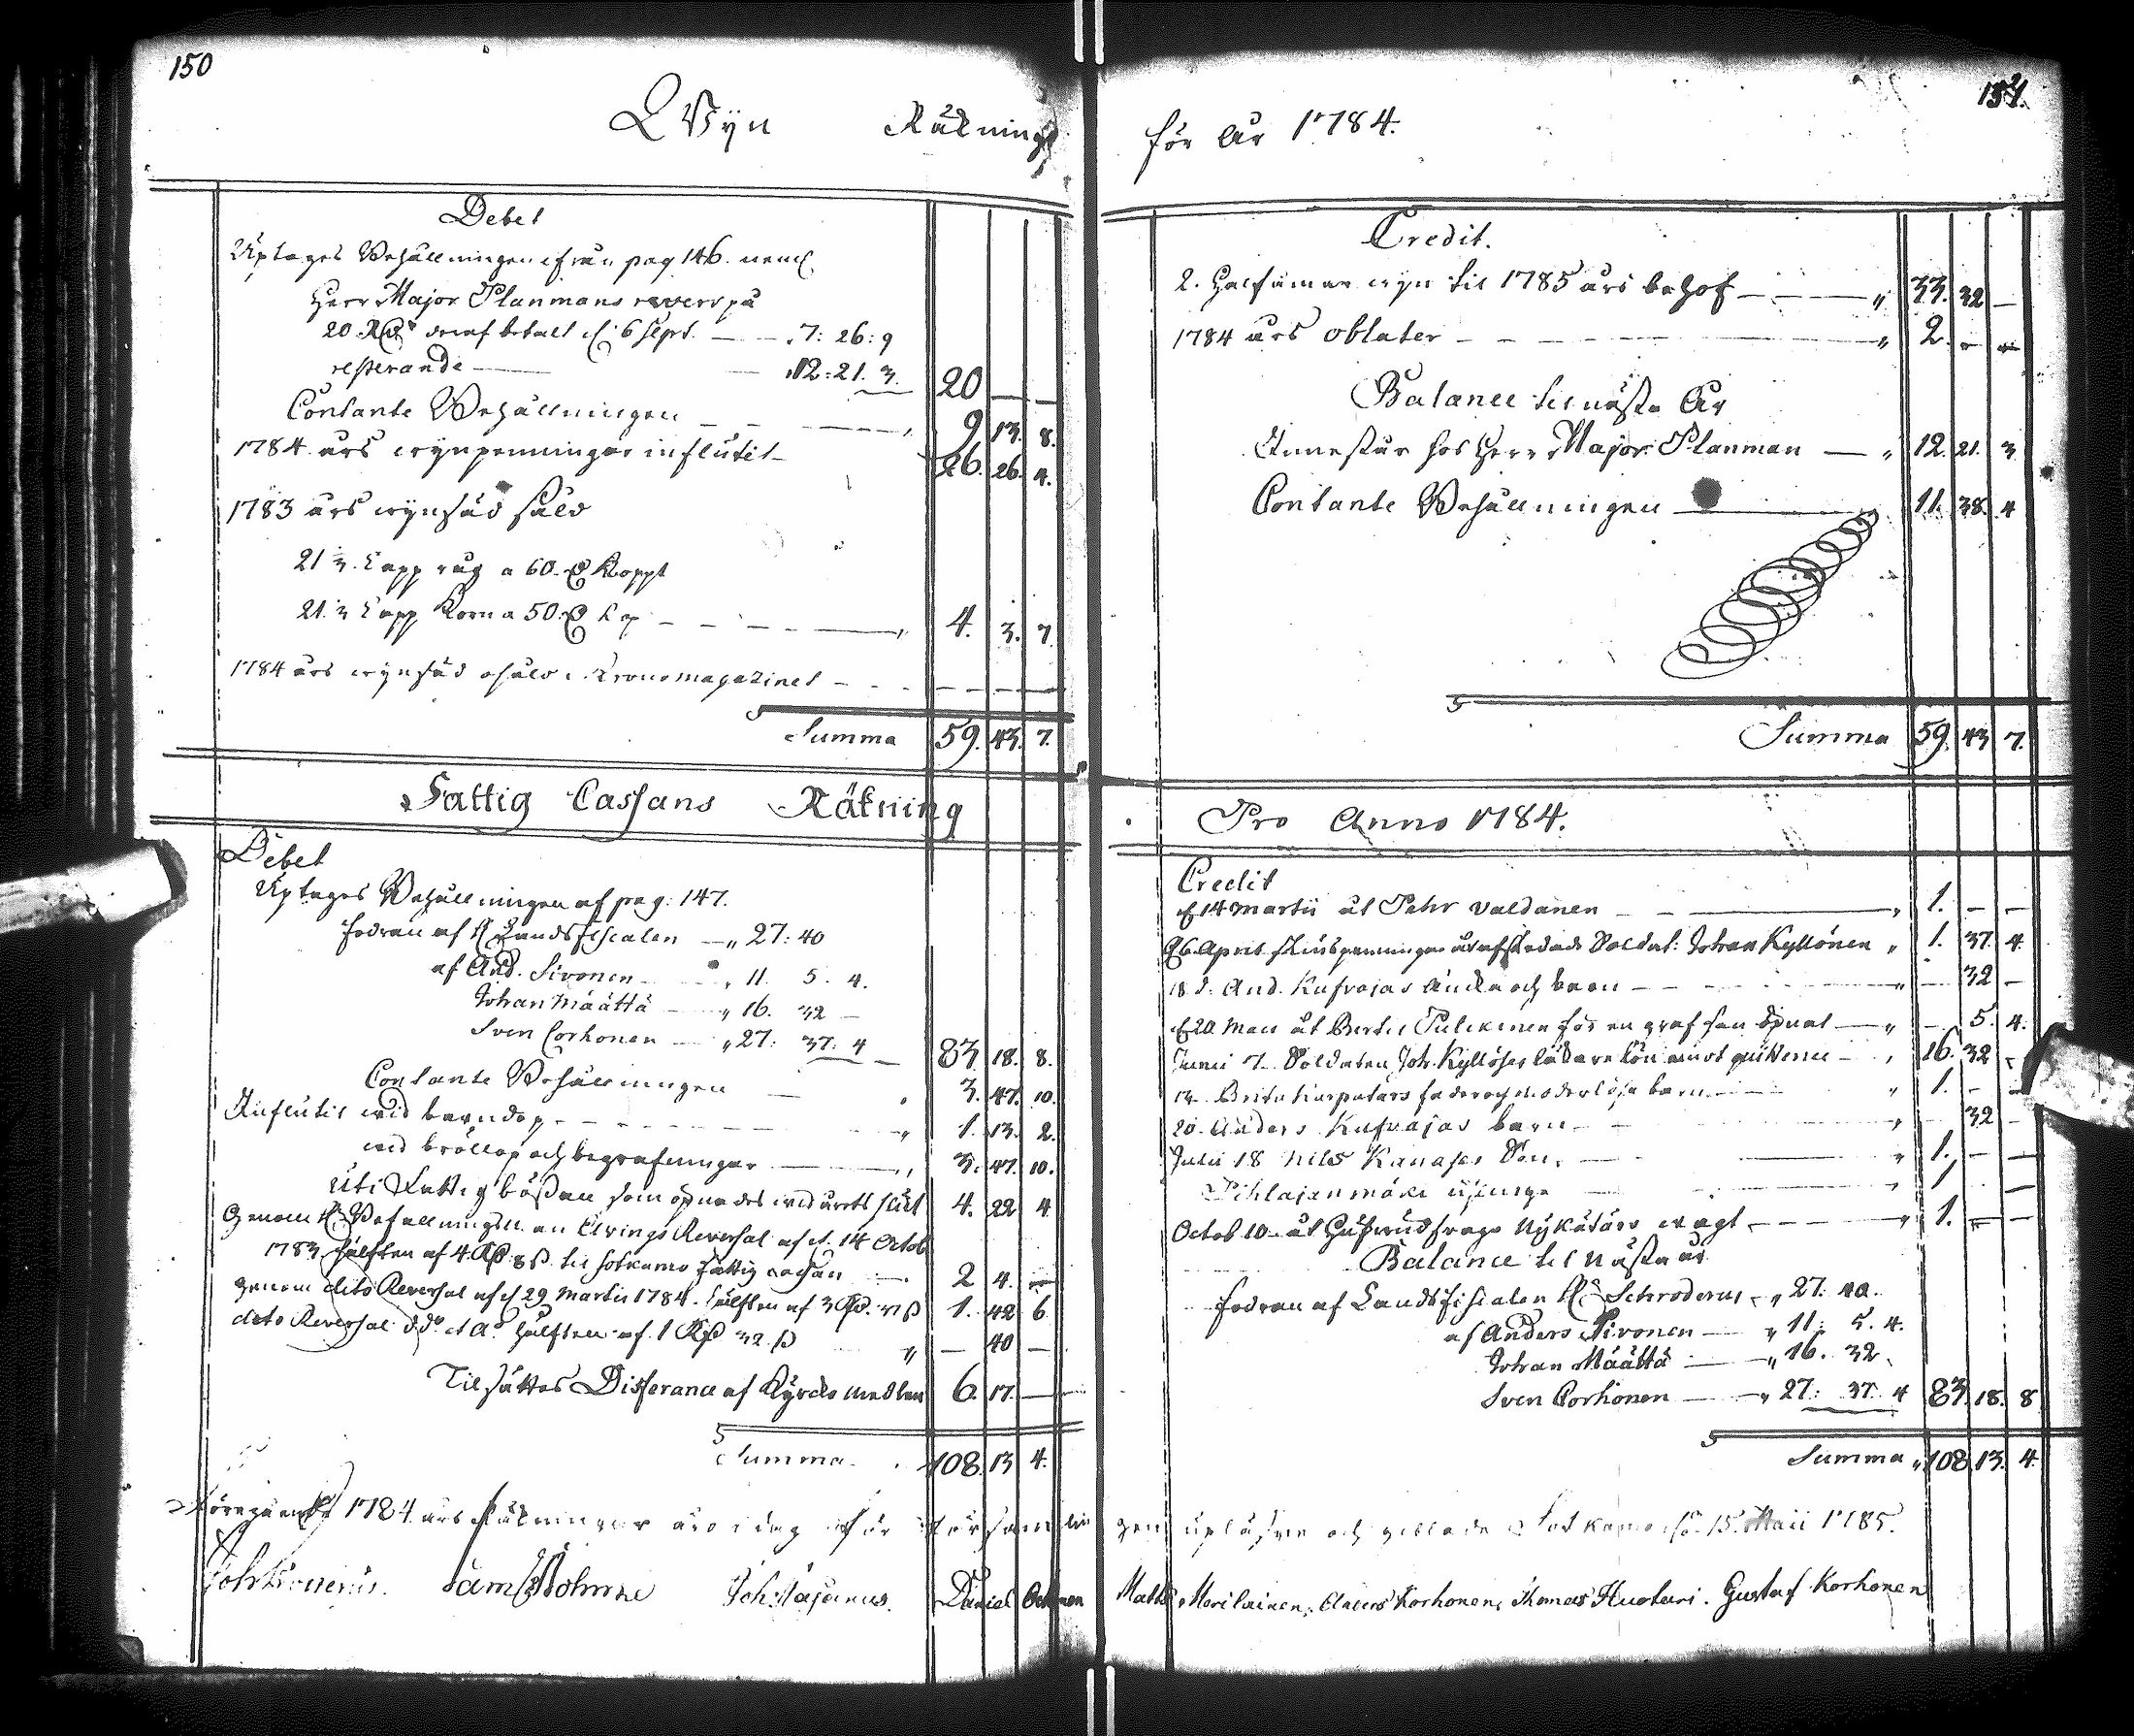 150
Wijn Räkning
Debet
Uptages Behållningen ifrån pag 146. neml.
Herr Major Planmans revers på
20 Rd. deraf betalt d. 6 Sept. — „ 7: 26: 9
resterande — „ 12: 21. 3. 20 — —
Contante Behållningen — „ 9 13. 8.
1784 års wijnpenningar influtit — 26. 26. 4.
1783 års wijnsäd såld
21 ⅓ Kapp råg a 60 Koppt
21 ⅓ Kapp Korn a 50 Kp — „ 4. 3. 7.
1784 års wijnsäd osåld i Kronomagazinet — — —
Summa 59. 43. 7.
Fattig Cassans Räkning
Debet
Uptages Behållningen af pag: 147.
fodran af H. Landsfiscalen — „ 27: 40
af And. Sivonen — „ 11. 5. 4.
Johan Määttä — „ 16. 32 —
Sven Corhonen — „ 27: 37: 4 83 18. 8.
Contante Behållningen — „ 3. 47. 10.
Influtit wid barndop — „ 1. 13. 2.
wid bröllop och begrafningar — „ 3. 47. 10.
Uti Fattig bössan som öpnades wid årets slut 4. 22 4
Genom H. Befallningsman Elvings Reversal af d. 14 Octob
1783 hälften af 4 Rd 8 s. til Sotkamo fattig cassan — 2 4. —
genom dito Reversal af d 29 Martii 1784. hälften af 3 Rd. 37 s 1. 42 6
dito Reversal d:do et A:o hälften af 1 Rd 32 s „ — 40 —
Tilsättes Differance af Kyrcko medlen 6. 17. —
Summa 108. 13 4.
Föregående 1784 års Räkningar äro i dag för Församlin
Joh: Sam Joh: Daniel
151.
för År 1784.
Credit.
2. Halfåmar wijn til 1785 års behof — „ 33. 32 —
1784 års oblater — „ 2. — —
Balance til nästa År
Innestår hos Herr Major Planman — „ 12. 21. 3
Contante Behållningen — 11. 38. 4
Summa 59. 43 7.
Pro Anno 1784.
Credit
d 14 Martii åt Pehr Valdanen — „ 1. — —
d 6 April Skiuspenningar åt afskedade Soldat: Johan Kyllönen „ 1. 37. 4.
18 d. And. Kufvajas Änka och barn — „ — 32 —
d 20 Maii åt Bertil Pulckinen för en graf som öpnat — „ — 5. 4.
Junii 7. Soldaten Joh. Kyllöses läkare lön emot quittence — „ 16. 32 —
13. Brita fader och moderlösa barn — „ 1. — —
20. Anders Kufvajas barn — „ — 32 —
Julii 18 Nils Son. — „ 1. — —
Pihlajanmäki — „ 1 — —
Octob 10. åt — „ 1. — —
Balance til Nästa år
Fodran af Landsfiscalen H. Schroderus — „ 27: 40.
af Anders Sivonen — „ 11: 5. 4.
Johan Määttä — „ 16. 32.
Sven Corhonen — „ 27: 37. 4 83. 18. 8
Summa „ 108. 13. 4.
gen upläsne och gillade Sotkamo d. 15. Maii 1785.
Matts Meriläinen, Anders Korhonen, Thomas Huotari. Gustaf Korhonen